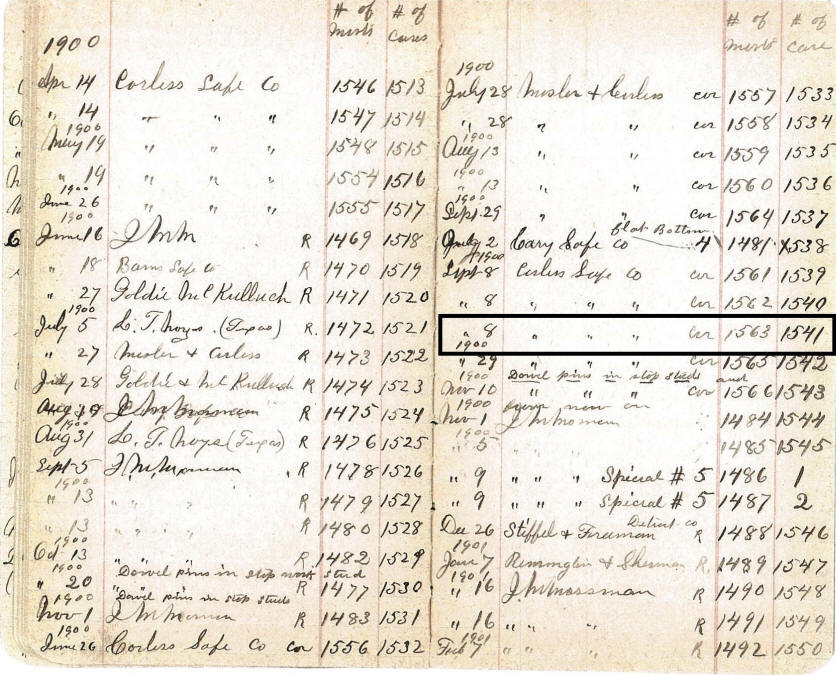 # of # of
1900 Mvts Cases
Apr 14 Corless Safe Co 1546 1513
" 14 " " " 1547 1514
1900
May 19 " " " 1548 1515
" 19 " " " 1554 1516
1900
June 26 " " " 1555 1517
1900
June 16 J M M R 1469 1518
" 18 Barns Safe Co R 1470 1519
" 27 Goldie McCulluch R 1471 1520
1900
July 5 L. T. Noyes. (Texas) R. 1472 1521
" 27 Mosler & Corless R 1473 1522
July 28 Goldie & McCulluch R 1474 1523
J M Mosman R 1475 1524
1900
Aug 31 L. T. Noys (Texas) R 1476 1525
Sept 5 J M Mosman R 1478 1526
1900
" 13 " " " 1479 1527
" 13 " " " 1480 1528
1900
Oct 13 " " " R. 1482 1529
1900 Dowel pins in stop stud
" 20 R 1477 1530
1900 Dowel pins in stop studs
Nov 1 J M Mosman R 1483 1531
1900
June 26 Corless Safe Co cor 1556 1532
# of # of
Mvts Case
1900
July 28 Mosler & Corless cor 1557 1533
" 28 " " cor 1558 1534
1900
Aug 13 " " cor 1559 1535
1900
" 13 " " cor 1560 1536
1900
Sept 29 " " cor 1564 1537
Flat Bottom
July 2 Cary Safe Co 4 1481 1538
1900
Sept 8 Corless Safe Co cor 1561 1539
" 8 " " " cor 1562 1540
" 8 " " " Cor 1563 1541
1900
" 29 " " " cor 1565 1542
1900 Dowel pins in stop studs and
Nov 10 " " " cor 1566 1543
1900 now on
Nov 1 J M Mosman 1484 1544
1900
" 5 1485 1545
" 9 " " " Special # 5 1486 1
" 9 " " " Special # 5 1487 2
Detroit co
Dec 26 Stiffel & Freeman R 1488 1546
1901
Jan 7 Remington & Sherman R. 1489 1547
1901
" 16 J M Mossman R 1490 1548
" 16 " " " R 1491 1549
1901
Feb 7 " " " R 1492 1550